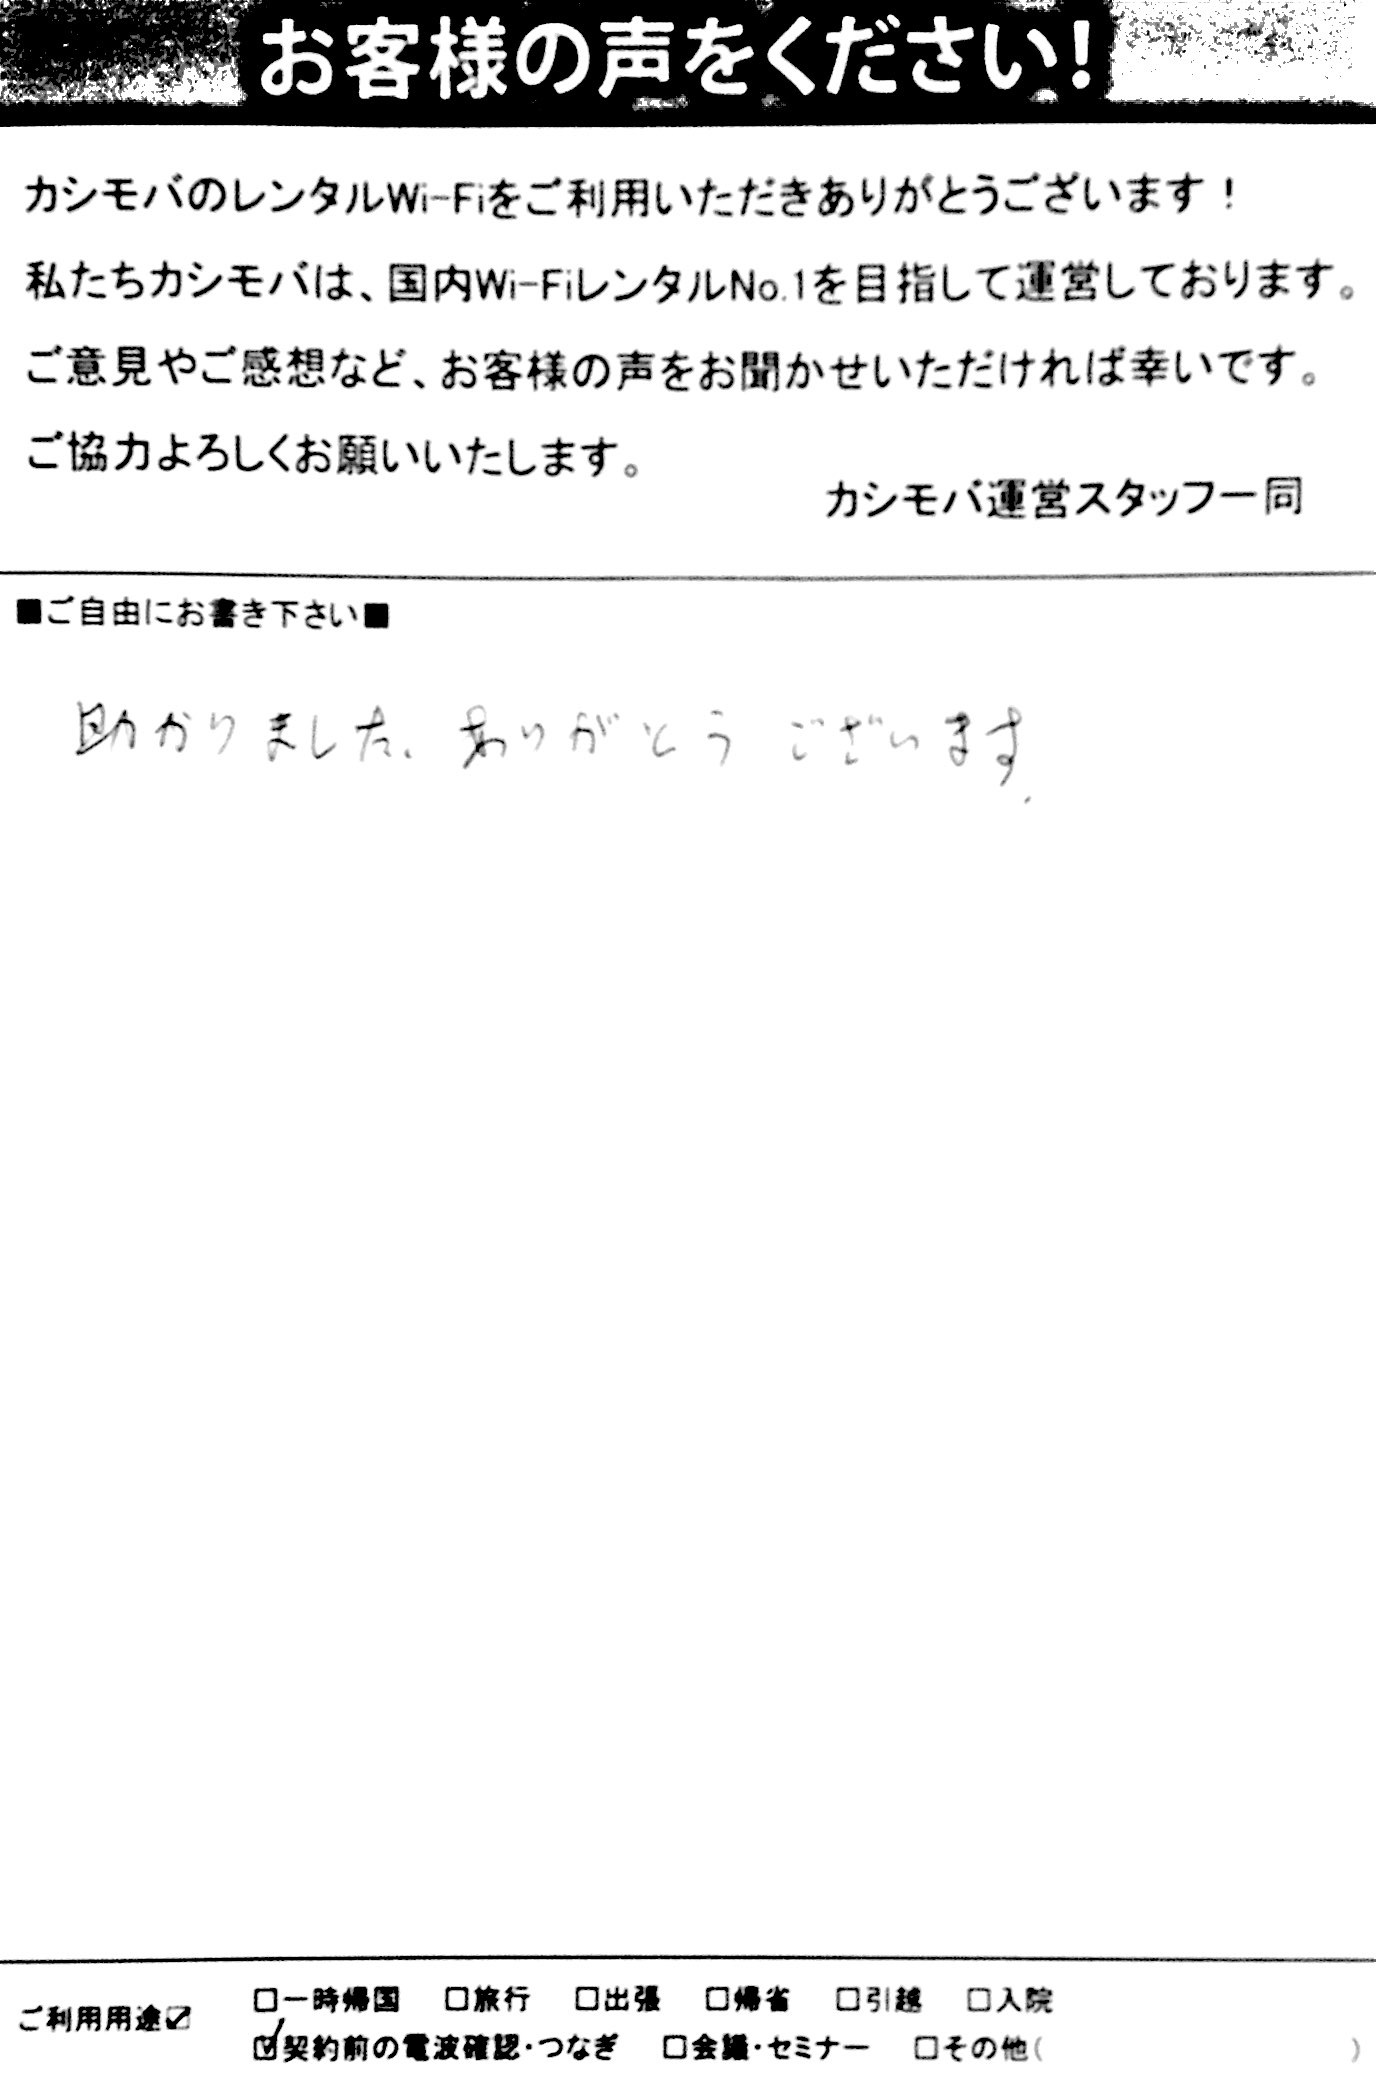 お客様の声をください!
カシモバのレンタルWi-Fiをご利用いただきありがとうございます！
私たちカシモバは、国内Wi-FiレンタルNo.1を目指して運営しております。
ご意見やご感想など、お客様の声をお聞かせいただければ幸いです。
ご協力よろしくお願いいたします。
カシモバ運営スタッフ一同
■ご自由にお書き下さい■
助かりました、ありがとうございます.
ご利用用途☑ □一時帰国 □旅行 □出張 □帰省 □引越 □入院
☑契約前の電波確認・つなぎ □会議・セミナー □その他( )